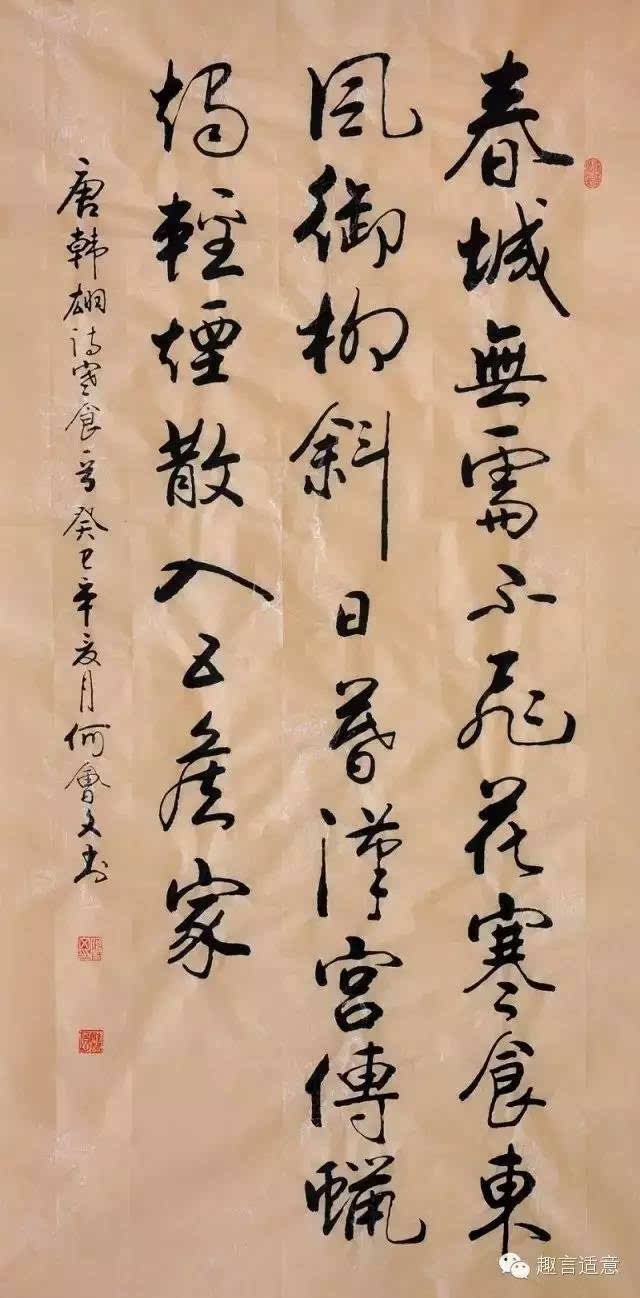 春城無處不飛花寒食東
風御柳斜日暮漢宮傳蠟
燭輕煙散入五侯家
唐韓翃詩寒食一首癸巳年夏月何會文書
趣言适意